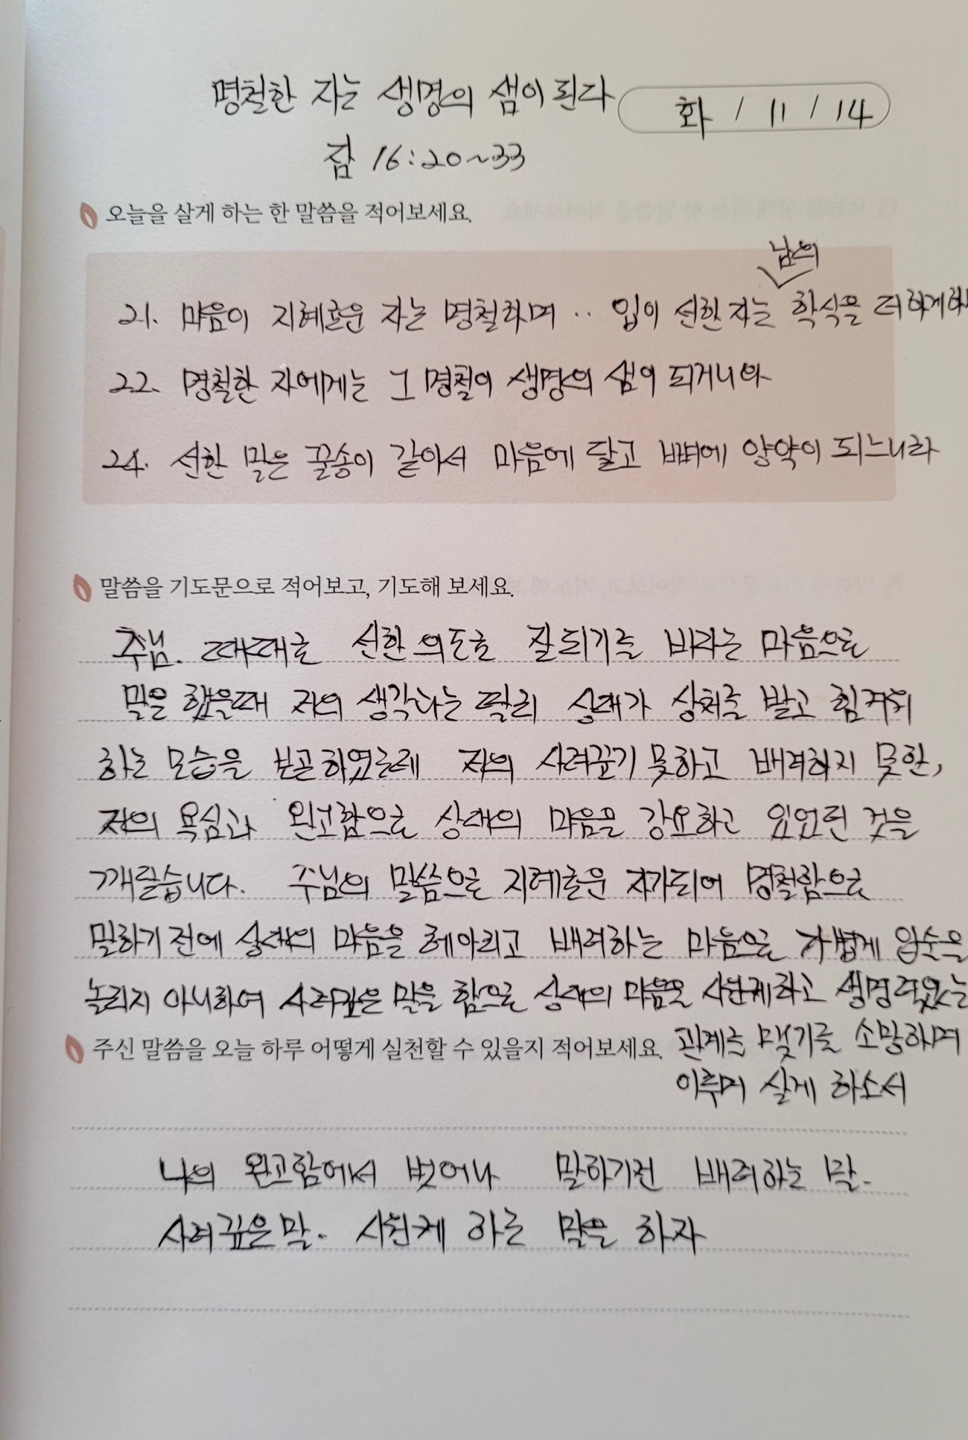 명철한 자는 생명의 샘이 된다
화 / 11 / 14
잠 16:20~33
오늘을 살게 하는 한 말씀을 적어보세요.
남의
21. 마음이 지혜로운 자는 명철하며 ·· 입이 선한 자는 학식을 더하게하
22. 명철한 자에게는 그 명철이 생명의 샘이 되거니와
24. 선한 말은 꿀송이 같아서 마음에 달고 뼈에 양약이 되느니라
말씀을 기도문으로 적어보고, 기도해 보세요.
주님. 때때로 선한 의도로 잘되기를 바라는 마음으로
말을 했을때 저의 생각과는 달리 상대가 상처를 받고 힘겨워
하는 모습을 보곤 하였는데 저의 사려깊지 못하고 배려하지 못한,
저의 욕심과 완고함으로 상대의 마음을 강요하고 있었던 것을
깨닫습니다. 주님의 말씀으로 지혜로운 자가되어 명철함으로
말하기 전에 상대의 마음을 헤아리고 배려하는 마음으로 가볍게 입술을
놀리지 아니하여 사려깊은 말을 함으로 상대의 마음도 시원케하고 생명력있는
주신 말씀을 오늘 하루 어떻게 실천할 수 있을지 적어보세요.
관계를 맺기를 소망하며
이루며 살게 하소서
나의 완고함에서 벗어나 말하기전 배려하는 말.
사려깊은말. 시원케 하는 말을 하자